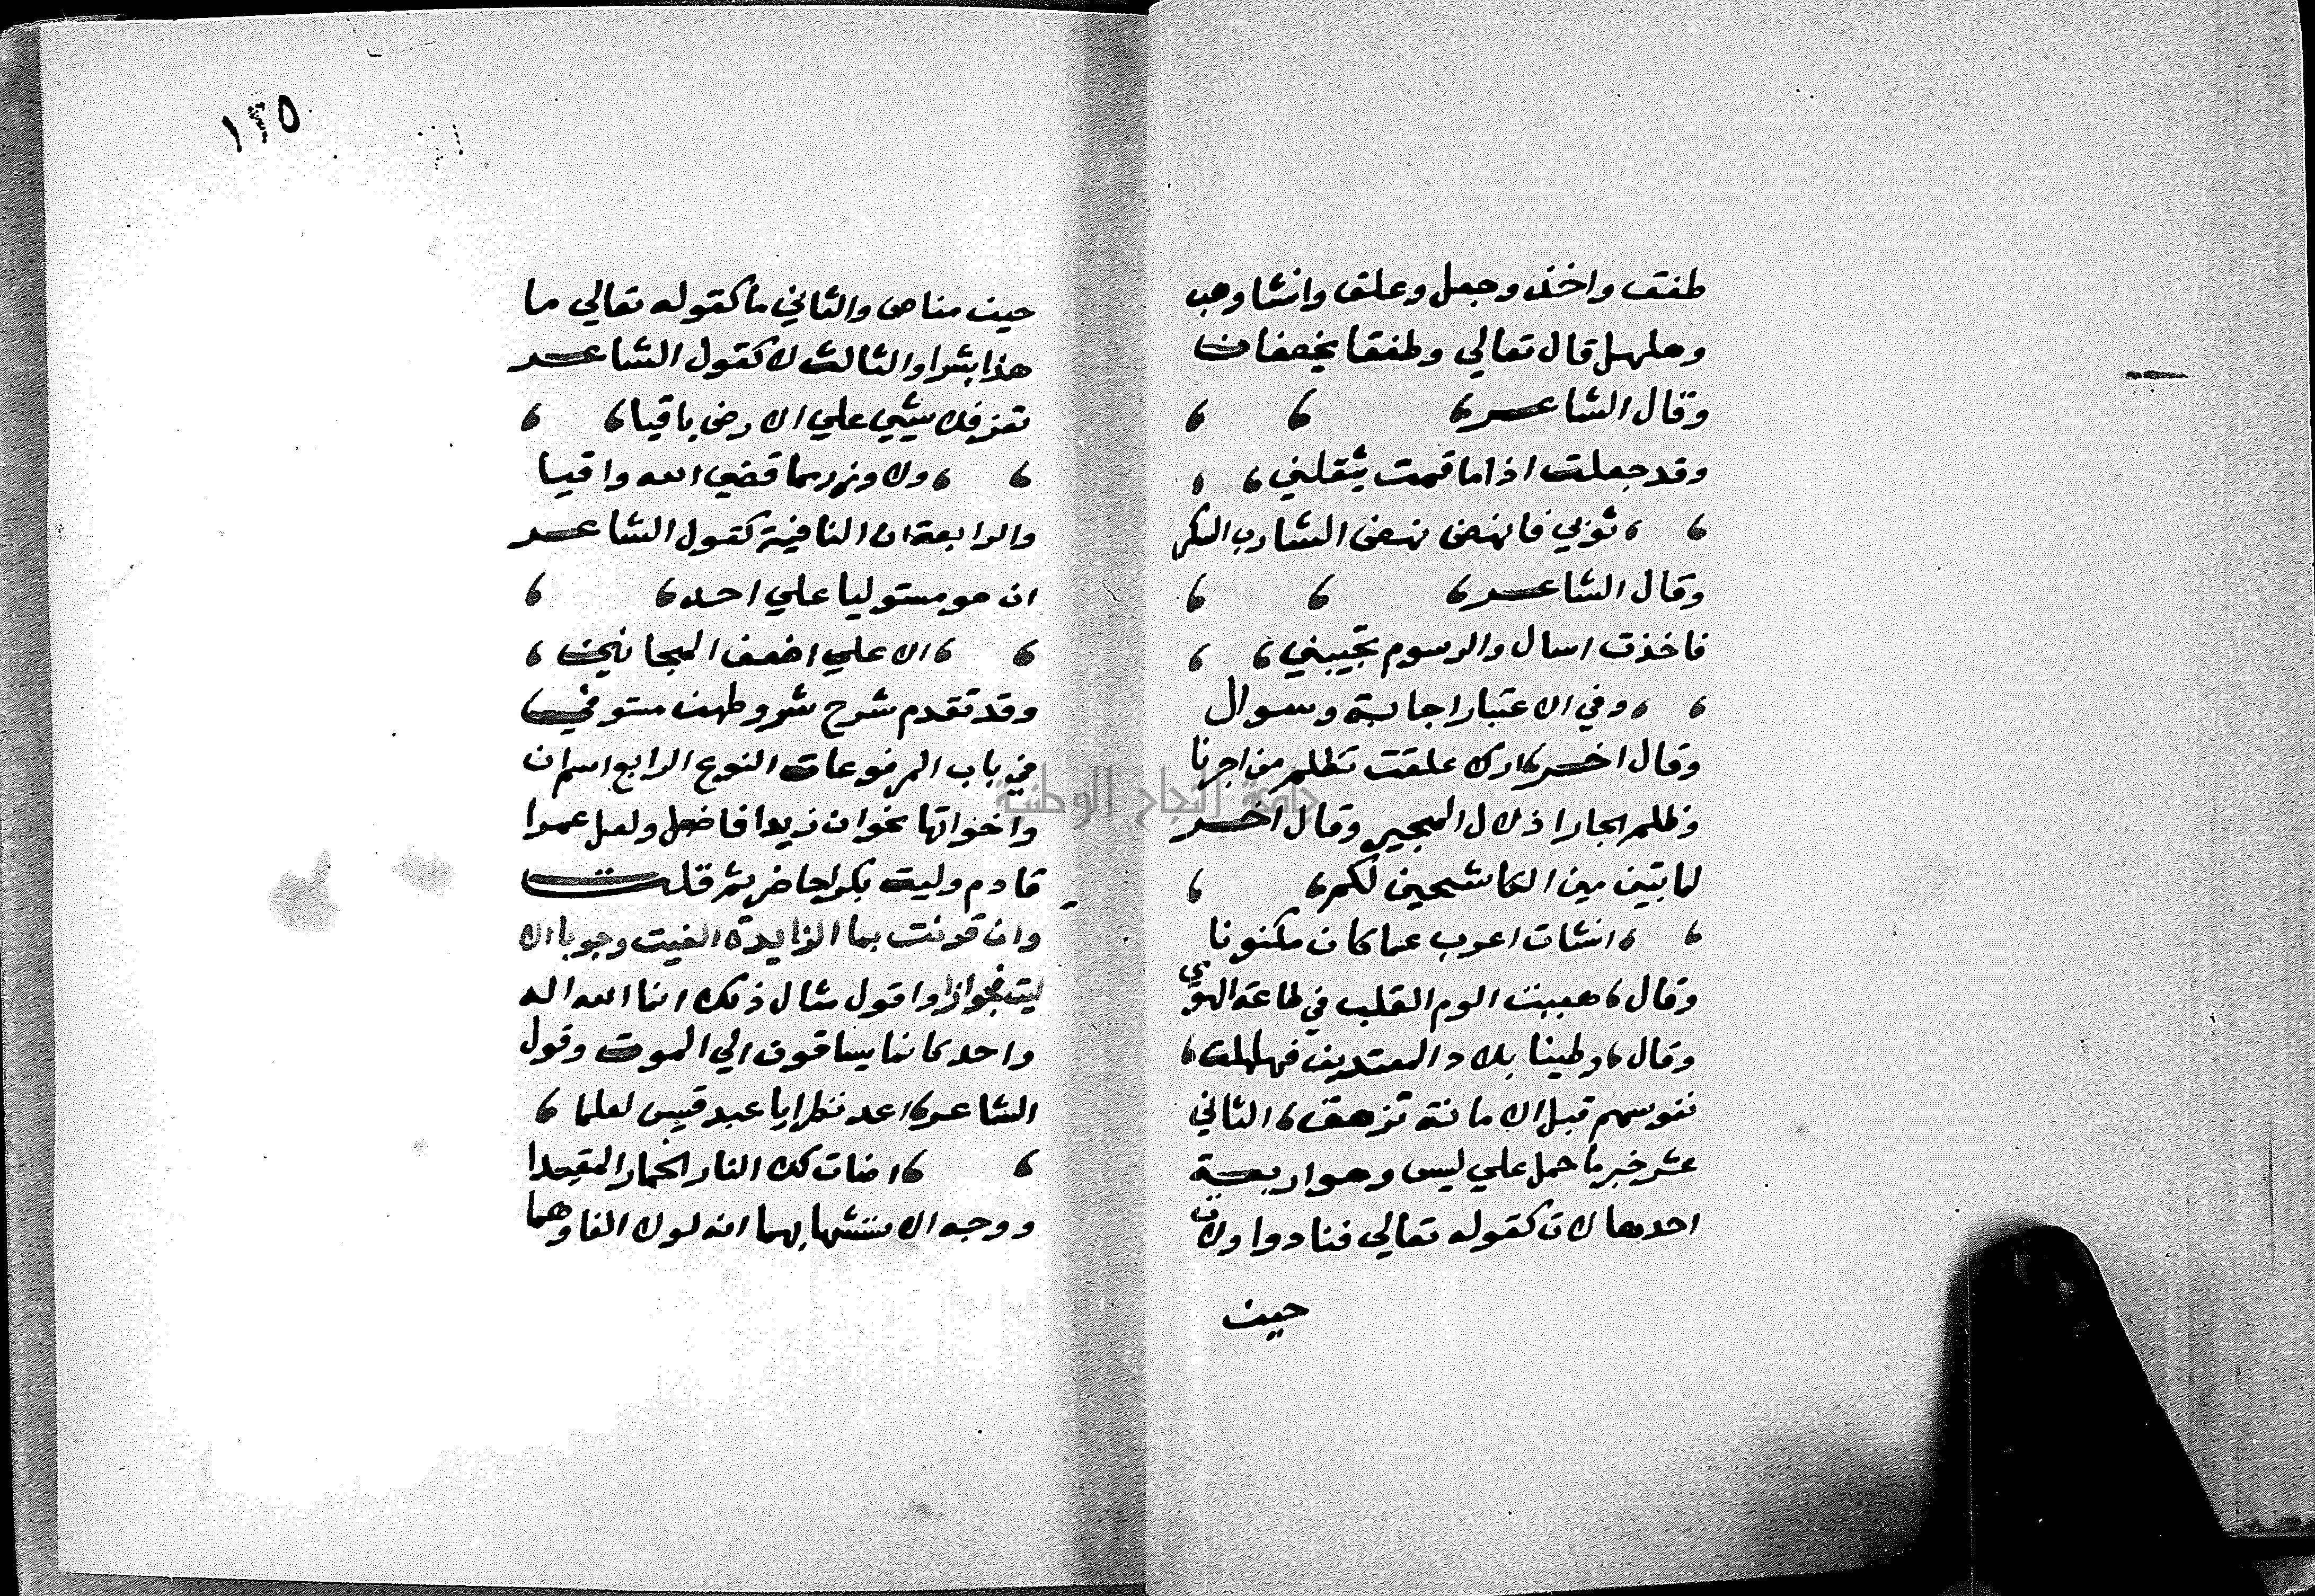 طفق واخذ وجعل وعلق وانشا وهب
وهلهل قال تعالي وطفقا يخصفان
وقال الشاعر
وقد جعلت اذا ما قمت يثقلني
ثوبي فانهض نهض الشارب السكر
وقال الشاعر
فاخذت اسال والرسوم تجيبني
وفي الاعتبار اجابة وسوال
وقال اخر اراك علقت تظلم من اجرنا
وظلم الجار اذلال المجير وقال اخر
لما تبين مين الكاشحين لكم
انشات اعرب عما كان مكنونا
وقال هببت الوم القلب في طاعة الهوي
وقال وطينا بلاد المعتدين فهلهلت
نفوسهم قبل الامانة تزهق الثاني
عشر خبر ما حمل علي ليس وهو اربعة
احدها لات كقوله تعالي فنادوا ولات
حين
١٢٥
حين مناص والثاني ما كقوله تعالي ما
هذا بشرا والثالث لا كقول الشاعر
تعز فلا شيي علي الارض باقيا
ولا وزر مما قضي الله واقيا
والرابعة ان النافية كقول الشاعر
ان هو مستوليا علي احد
الا علي اضعف المجانين
وقد تقدم شرح شروطهن مستوفي
في باب المرفوعات النوع الرابع اسم ان
واخواتها نحو ان زيدا فاضل ولعل عمرا
قادم وليت بكرا حاضر ثم قلت
وان قرنت بما الزايدة الغيت وجوبا الا
ليت فجوازا واقول مثال ذلك انما الله اله
واحد كانما يساقون الي الموت وقول
الشاعر اعد نظرا يا عبد قيس لعلما
اضات لك النار الحمار المقيدا
ووجه الاستشها بهما انه لولا الغاوهما
جامعة النجاح الوطنية